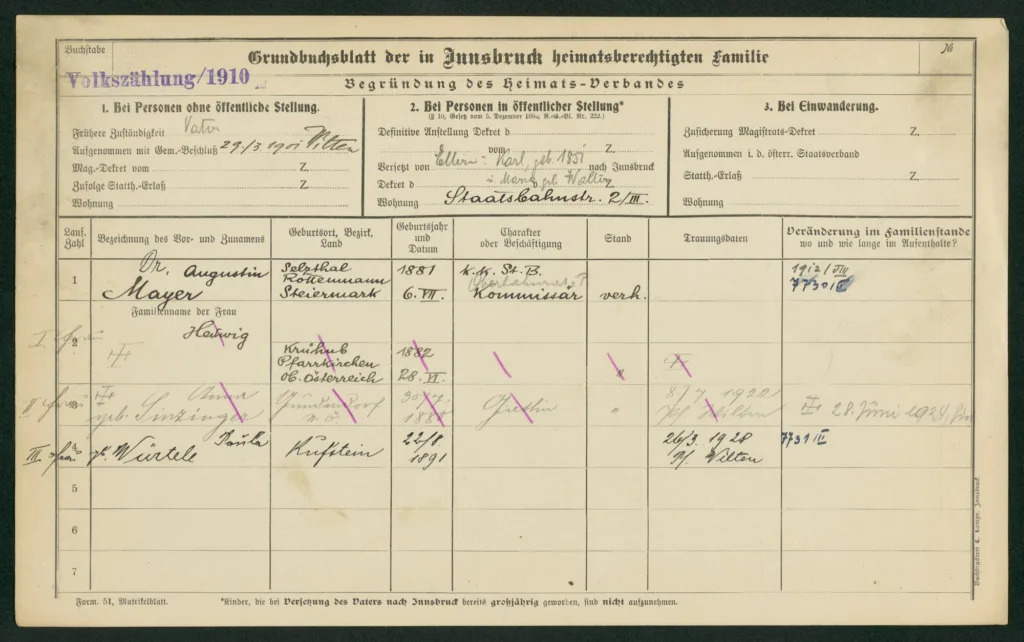 Buchstabe
Grundbuchsblatt der in Innsbruck heimatsberechtigten Familie
Volkszählung/1910
Begründung des Heimats-Verbandes
1. Bei Personen ohne öffentliche Stellung.
Frühere Zuständigkeit Vater
Aufgenommen mit Gem.-Beschluß 29./3. 1901 Wilten
Mag.-Dekret vom Z.
Zufolge Statth.-Erlaß Z.
Wohnung
2. Bei Personen in öffentlicher Stellung*
(§ 10, Gesetz vom 5. Dezember 1896, R.-G.-Bl. Nr. 222.)
Definitive Anstellung Dekret d
vom Z.
Eltern: Karl, geb. 1851
Versetzt von nach Innsbruck
u. Maria geb. Walter
Dekret d Z.
Wohnung Staatsbahnstr. 2/III.
3. Bei Einwanderung.
Zusicherung Magistrats-Dekret Z.
Aufgenommen i. d. österr. Staatsverband
Statth.-Erlaß Z.
Wohnung
Lauf. Zahl
Bezeichnung des Vor- und Zunamens
Geburtsort, Bezirk, Land
Geburtsjahr und Datum
Charakter oder Beschäftigung
Stand
Trauungsdaten
Veränderung im Familienstande
wo und wie lange im Aufenthalte?
1
Dr. Augustin
Mayer
Selzthal
Rottenmann
Steiermark
1881
6. VII.
K.K. St. B.
Kommissär
verh.
1912/VIII
7730
Familienname der Frau
I Frau
2
Hedwig
Pfarrkirchen
ob. Österreich
1882
28. VI.
"
II Frau
3
Anna
geb. Sinzinger
n. ö
"
1920
Pf. Wilten
28. Juni 1924
III Frau
Paula
gb. Würtele
Kufstein
22/8
1891
26/3. 1928
Pf. Wilten
7731 III
5
6
7
Form. 51, Matrikelblatt.
*Kinder, die bei Versetzung des Vaters nach Innsbruck bereits großjährig geworden, sind nicht aufzunehmen.